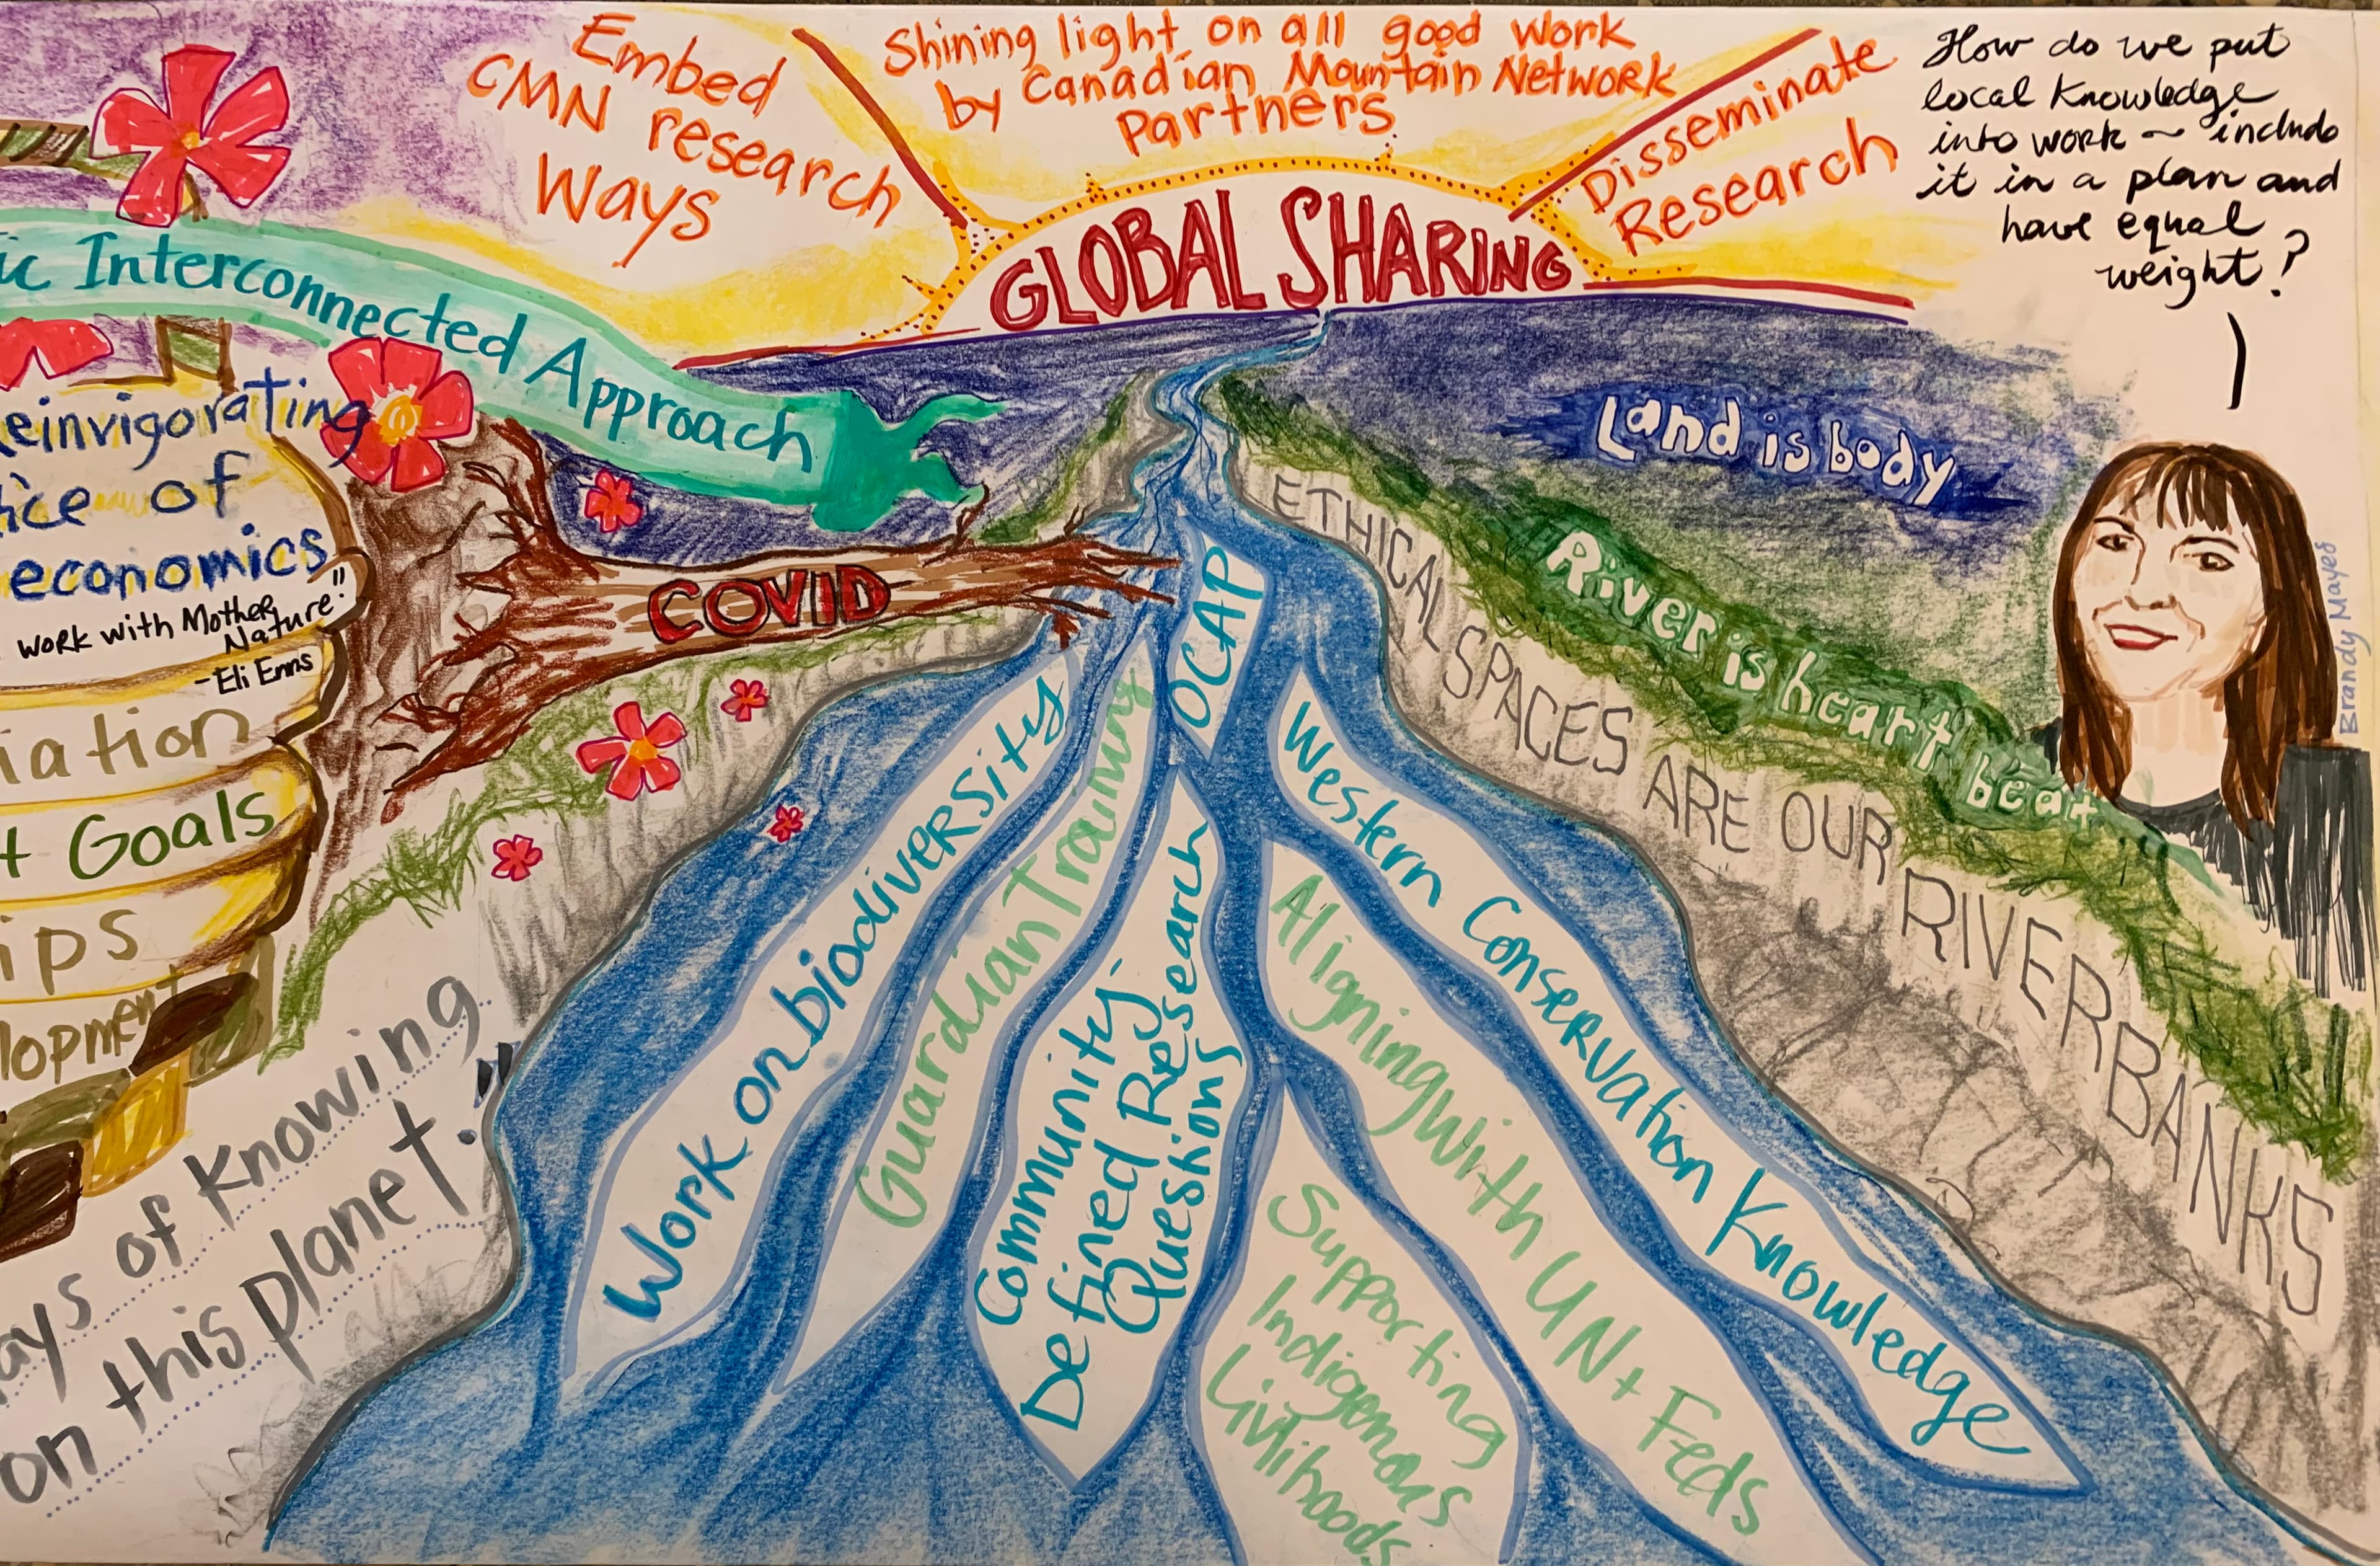 Embed
CMN research
Ways
Shining light on all good work
by Canadian Mountain Network
Partners
Disseminate
Research
GLOBAL SHARING
How do we put
local knowledge
into work ~ include
it in a plan and
have equal
weight?
Brandy Mayes
ic Interconnected Approach
einvigorating
ice of
economics
work with Mother
Nature!"
-Eli Enns
iation
+ Goals
ips
lopment
COVID
Land is body
River is heart beat
ETHICAL SPACES ARE OUR RIVERBANKS
OCAP
Work on biodiversity
Guardian Training
Community-
Defined Research
Questions
Supporting
Indigenous
Livlihoods
Aligning with UN + Feds
Western Conservation Knowledge
ays of Knowing
on this planet."